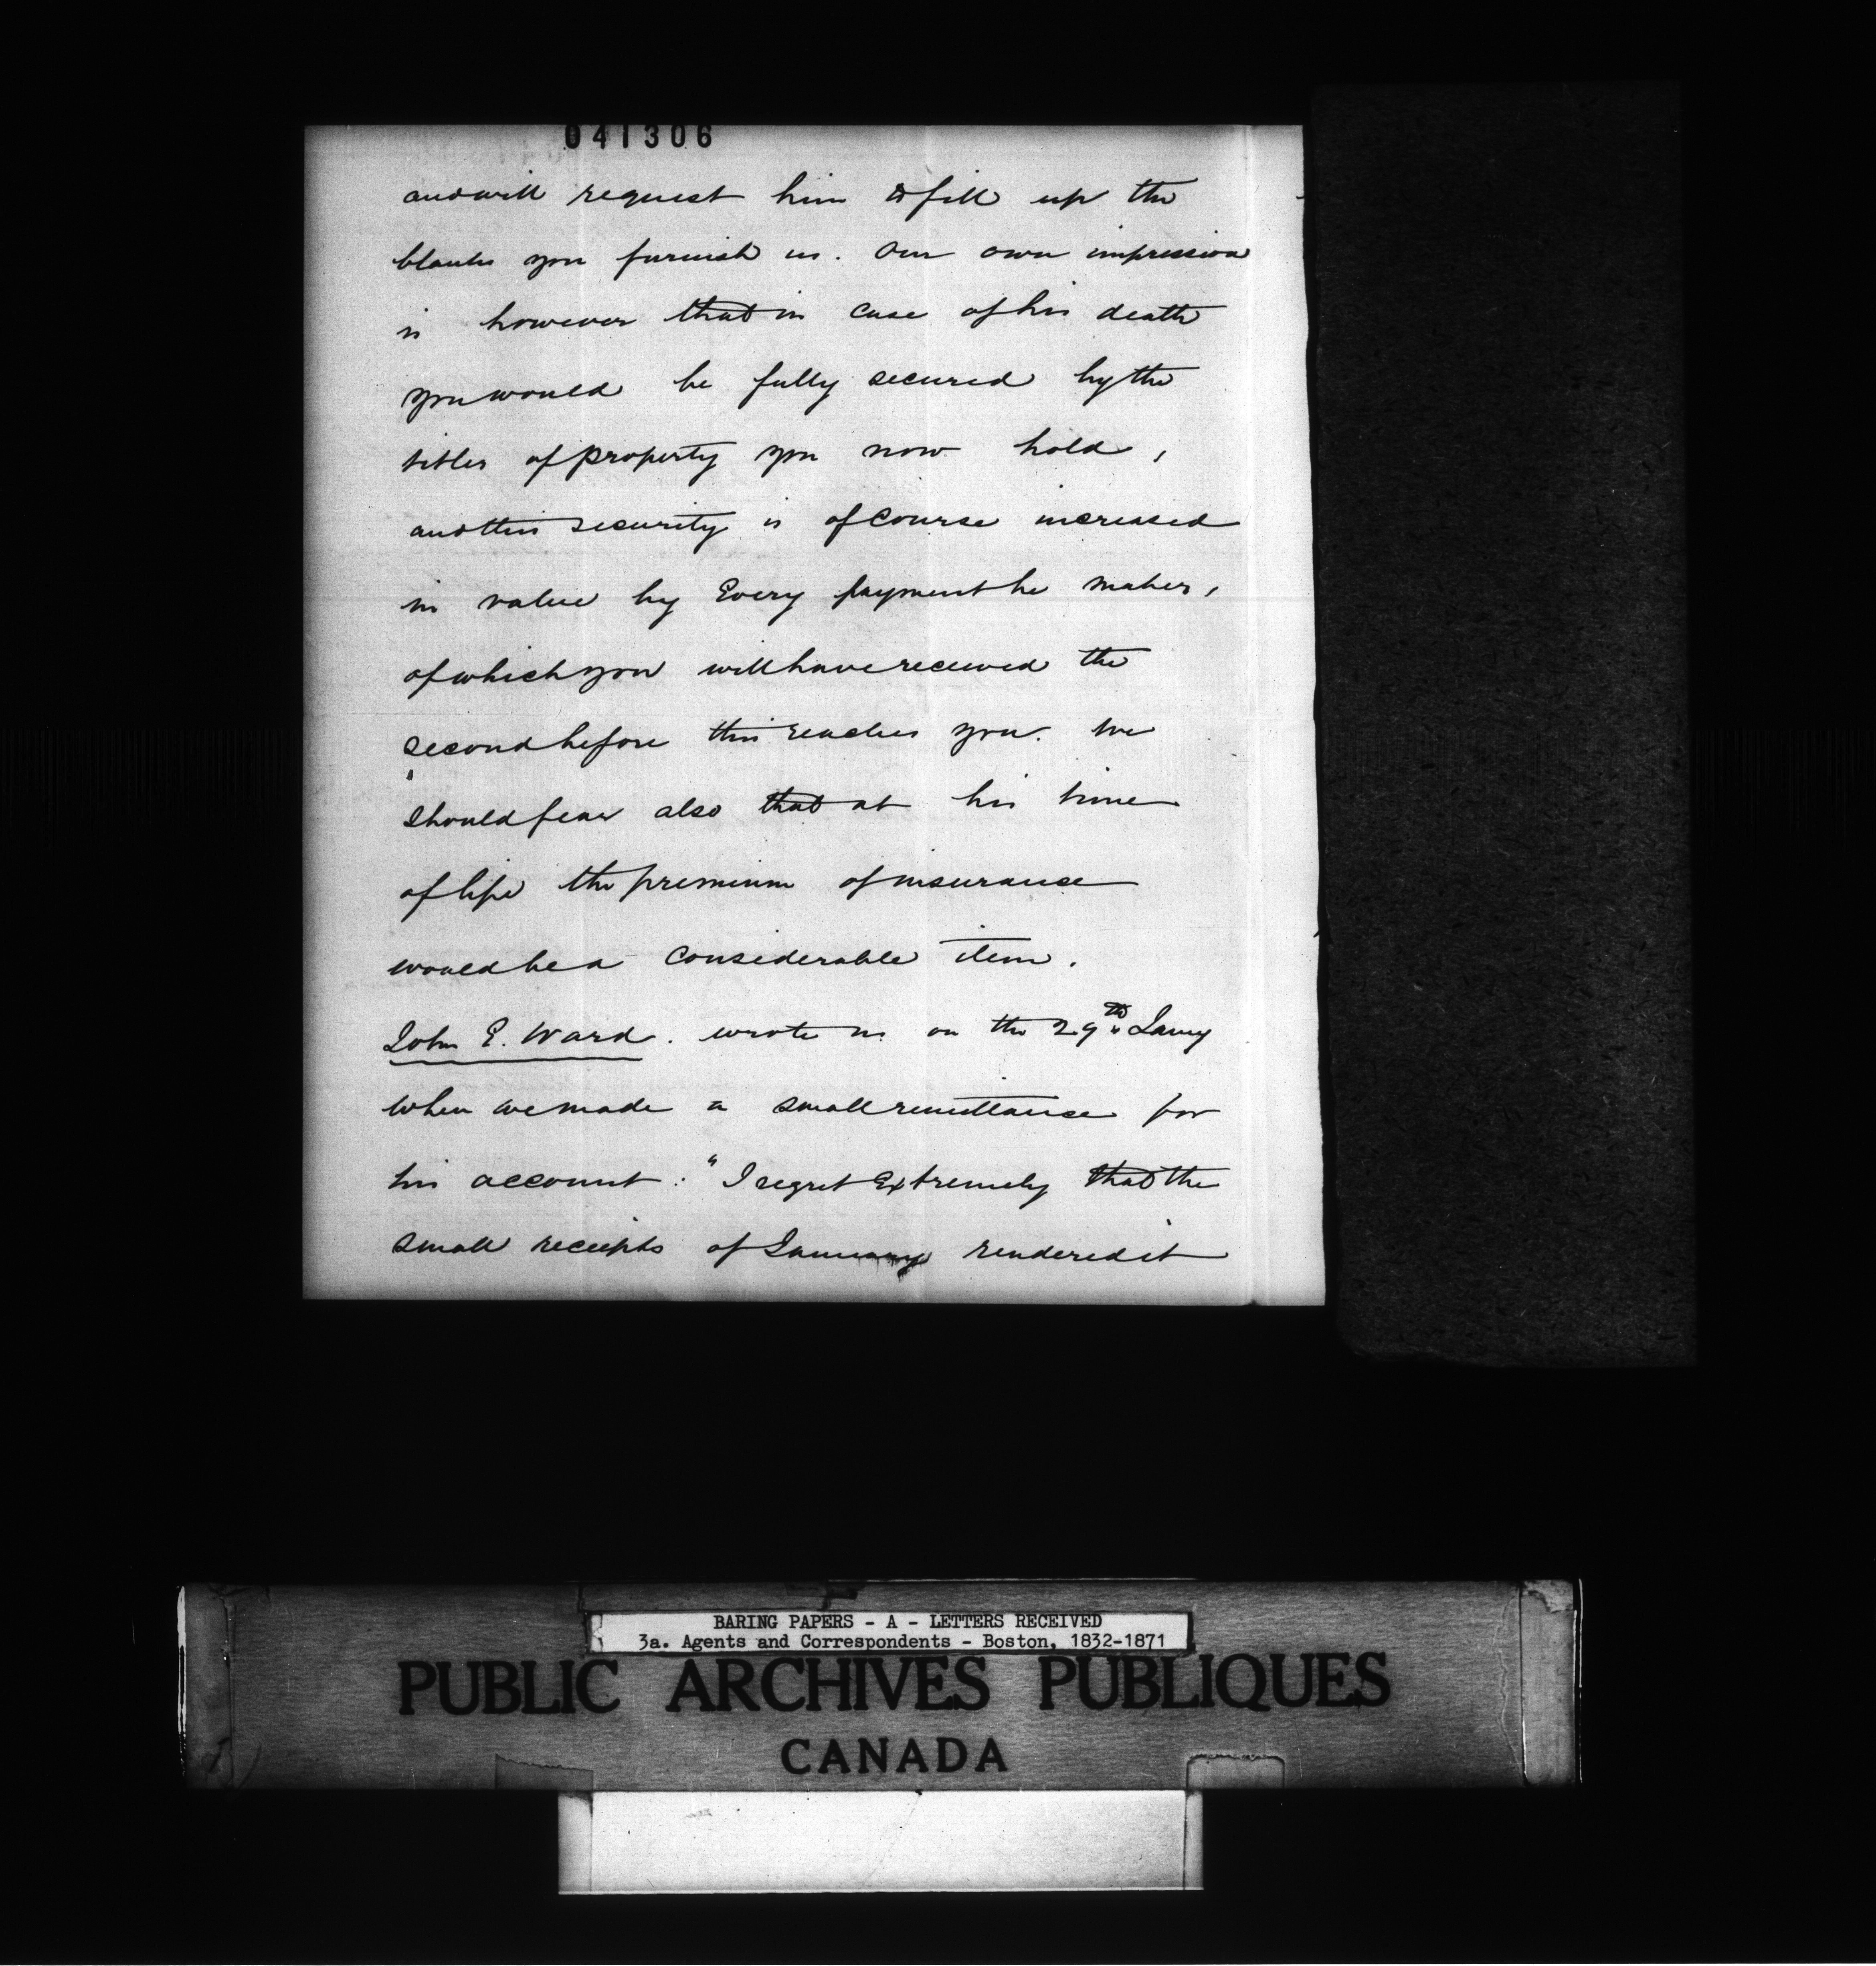 041306
and will request him to fill up the
blanks you furnish us. Our own impression
is however that in case of his death
you would be fully secured by the
titles of property you now hold,
and this security is of course increased
in value by Every payment he makes,
of which you will have received the
second before this reaches you. We
should fear also that at his time
of life the premium of insurance
would be a considerable item.
John E. Ward. wrote us on the 29th Jany
when we made a small remittance for
his account: "I regret Extremely that the
small receipts of January rendered it
BARING PAPERS - A - LETTERS RECEIVED
3a. Agents and Correspondents - Boston, 1832-1871
PUBLIC ARCHIVES PUBLIQUES
CANADA